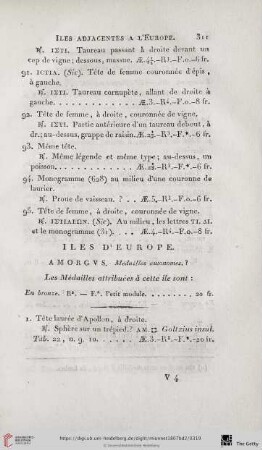 ILES ADJACENTES A L'EUROPE. 311
℞. ΙΧΤΙ. Taureau passant à droite devant un
cep de vigne; dessous, massue. Æ.4½.-R³.-F.o.-6 fr.
91. ΙϹΤΙΑ. (Sic). Tête de femme couronnée d'épis,
à gauche.
℞. ΙΧΤΙ. Taureau cornupète, allant de droite à
gauche. Æ.3.-R⁴.-F.o.-8 fr.
92. Tête de femme, à droite, couronnée de vigne.
℞. ΙΧΤΙ. Partie antérieure d'un taureau debout, à
dr.; au-dessus, grappe de raisin. Æ.
93. Même tête.
℞. Même légende et même type; au-dessus, un
poisson.
94. Monogramme (628) au milieu d'une couronne de
laurier.
℞. Proue de vaisseau. ? . . Æ.5.
95. Tête de femme, à droite, couronnée de vigne.
(Sic). Au milieu, les lettres ΤΙ. ΔΙ.
et le monogramme (31). . . Æ.4.-R⁴.-F.o.-8 fr.
ILES D'EUROPE.
AMORGVS. Médailles autonomes.?
Les Médailles attribuées à cette île sont :
En bronze. R⁸. — F.*. Petit module. 20 fr.
1. Tête laurée d'Apollon, à droite.
℞. Sphère sur un trépied.? ΑΜ. Goltzius insul.
Tab. 22, n. 9, 10. Æ.3.-R⁸.-F.*.-20 fr.
V 4
http://digi.ub.uni-heidelberg.de/diglit/mionnet1807bd2/0313
© Universitätsbibliothek Heidelberg
The Getty